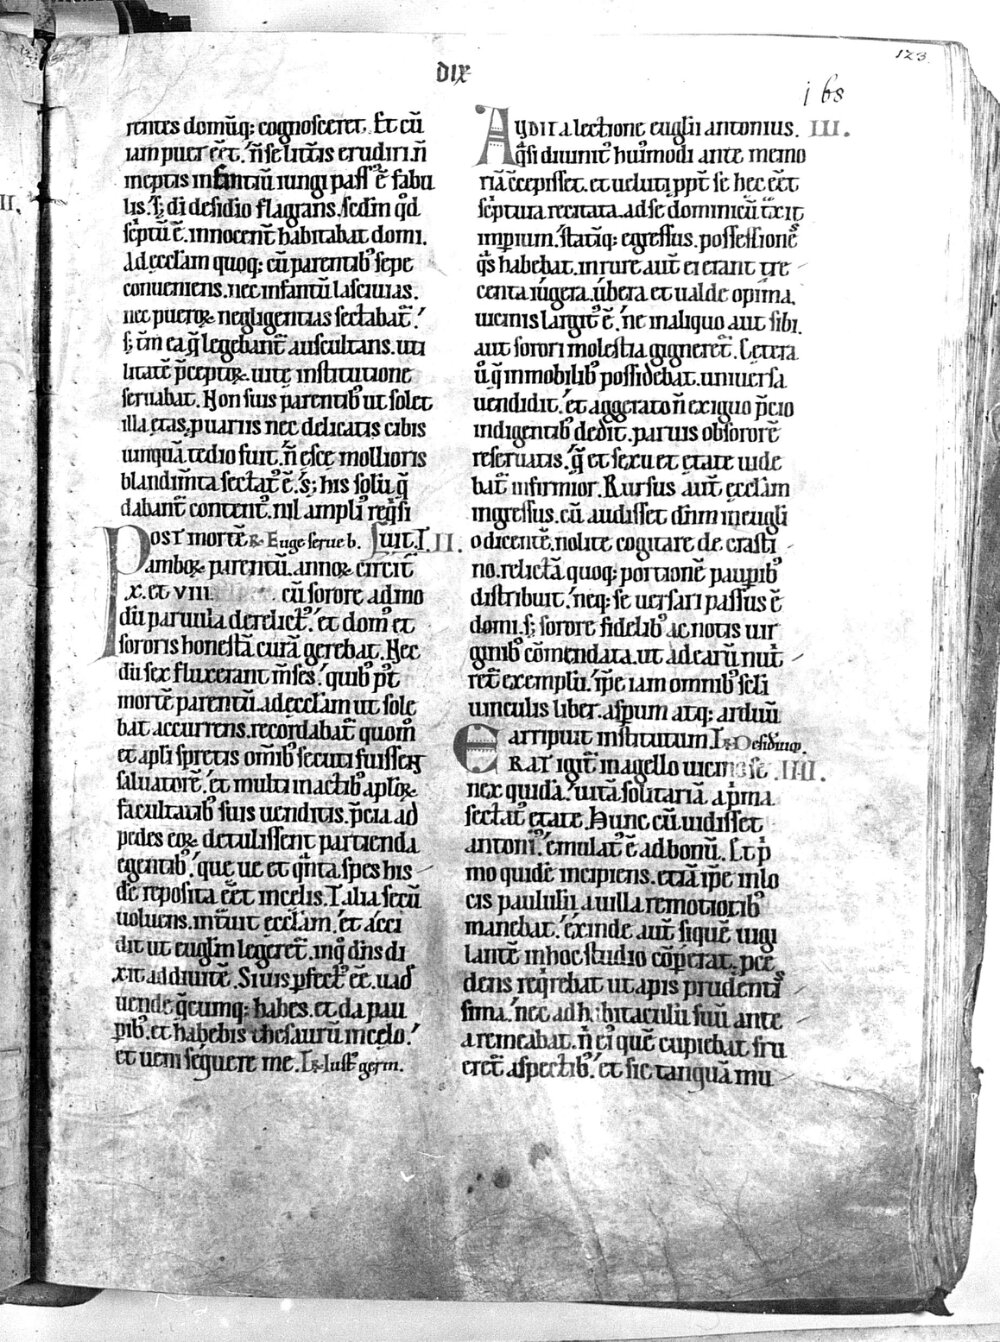 123
DIX
i 68
rentes domũq; cognosceret. Et cũ
iam puer eẽt. ñ se litt̃is erudiri. ñ
ineptis infantiũ iungi passꝰ ẽ fabu
lis. s; di desidio flagrans. sedm qd̃
sc̃ptũ ẽ. innocent̃ habitabat domi.
Ad eccl̃am quoq; cũ parentibꝰ sepe
conueniens. nec infantũ lasciuias.
nec pueroꝝ negligentias sectabat̃.
s; tm̃ ea q̃ legebant̃ auscultans. uti
litatẽ p̃ceptoꝝ uite institutione
seruabat. Non suis parentibꝰ ut solet
illa etas, puariis nec delicatis cibis
unquã tedio fuit. ñ esce mollioris
blandim̃ta sectatꝰ ẽ. s; his solũ q̃
dabant̃ contentꝰ. nil ampliꝰ reqͥsi
uit. II.
Post mortẽ
R. Euge serue b.
amboꝝ parentũ. annoꝝ circit̃
x. et VIII cũ sorore admo
dũ paruula derelictꝰ. et domꝰ et
sororis honestã curã gerebat. Nec
dũ sex fluxerant m̃ses. quibꝰ pꝰt
mortẽ parentũ. ad eccl̃am ut sole
bat accurrens. recordabat̃ quom̊
et apl̃i spretis om̃ibꝰ secuti fuissent
saluatorẽ. et multi in actibꝰ apl̃oꝝ
facultatibꝰ suis uenditis. p̃cia ad
pedes eoꝝ detulissent partienda
egentibꝰ. que ue et qͣnta spes his
de reposita eẽt in celis. Talia secũ
uoluens. int̃uit eccl̃am. et acci
dit ut eugl̃m legeret̃. in q̊ dn̄s di
xit ad diuitẽ. Si uis ꝑfectꝰ eẽ. uad̃
uende q̃cumq; habes. et da pau
ꝑibꝰ. et habebis thesaurũ in celo.
et ueni sequere me. R. Iustꝰ germ.
AVDITA lectione eugl̃ii antonius. III.
q̃si diuinitꝰ huiꝰmodi ante memo
riã accepisset. et ueluti ꝓpt̃ se hec eẽt
sc̃ptura recitata. ad se dominicũ t̃xit
imꝑium. statĩq; egressus. possessionẽ
qͣs habebat. in rure aut̃ ei erant tre
centa iugera. ubera et ualde opima.
uicinis largitꝰ ẽ. ne in aliquo aut sibi.
aut sorori molestia gigneret̃. Cetera
ũ q̃ in mobilibꝰ possidebat. uniuersa
uendidit. et aggerato ñ exiguo p̃cio
indigentibꝰ dedit. paruis ob sororẽ
reseruatis. q̃ et sexu et etate uide
bat̃ infirmior. Rursus aut̃ eccl̃am
ingressus. cũ audisset dñm in eugl̃i
o dicentẽ. nolite cogitare de crasti
no. relictã quoq; portionẽ pauꝑibꝰ
distribuit. neq; se uersari passus ẽ
domi. s; sorore fidelibꝰ ac notis uir
ginibꝰ cõmendata. ut ad earũ nut̃i
ret̃ exemplũ. ip̃e iam omnibꝰ sc̃li
uinculis liber. asꝑum atq; arduũ
arripuit institutum. R. Desideriũ.
ERAT igit̃ in agello uicino se IIII.
nex quidã. uitã solitariã a p̃ma
sectatꝰ etate. Hunc cũ uidisset
antoniꝰ. emulatꝰ ẽ ad bonũ. Et p̃
mo quidẽ incipiens. etiã ip̃e in lo
cis paululũ a uilla remotioribꝰ
manebat. exinde aut̃ siquẽ uigi
lantẽ in hoc studio cõperat. pce
dens reqͥrebat ut apis prudentis
sima. nec ad habitaculũ suũ ante
a remeabat. ñ eiꝰ quẽ cupiebat fru
eret̃ aspectibꝰ. et sic tanquã mu